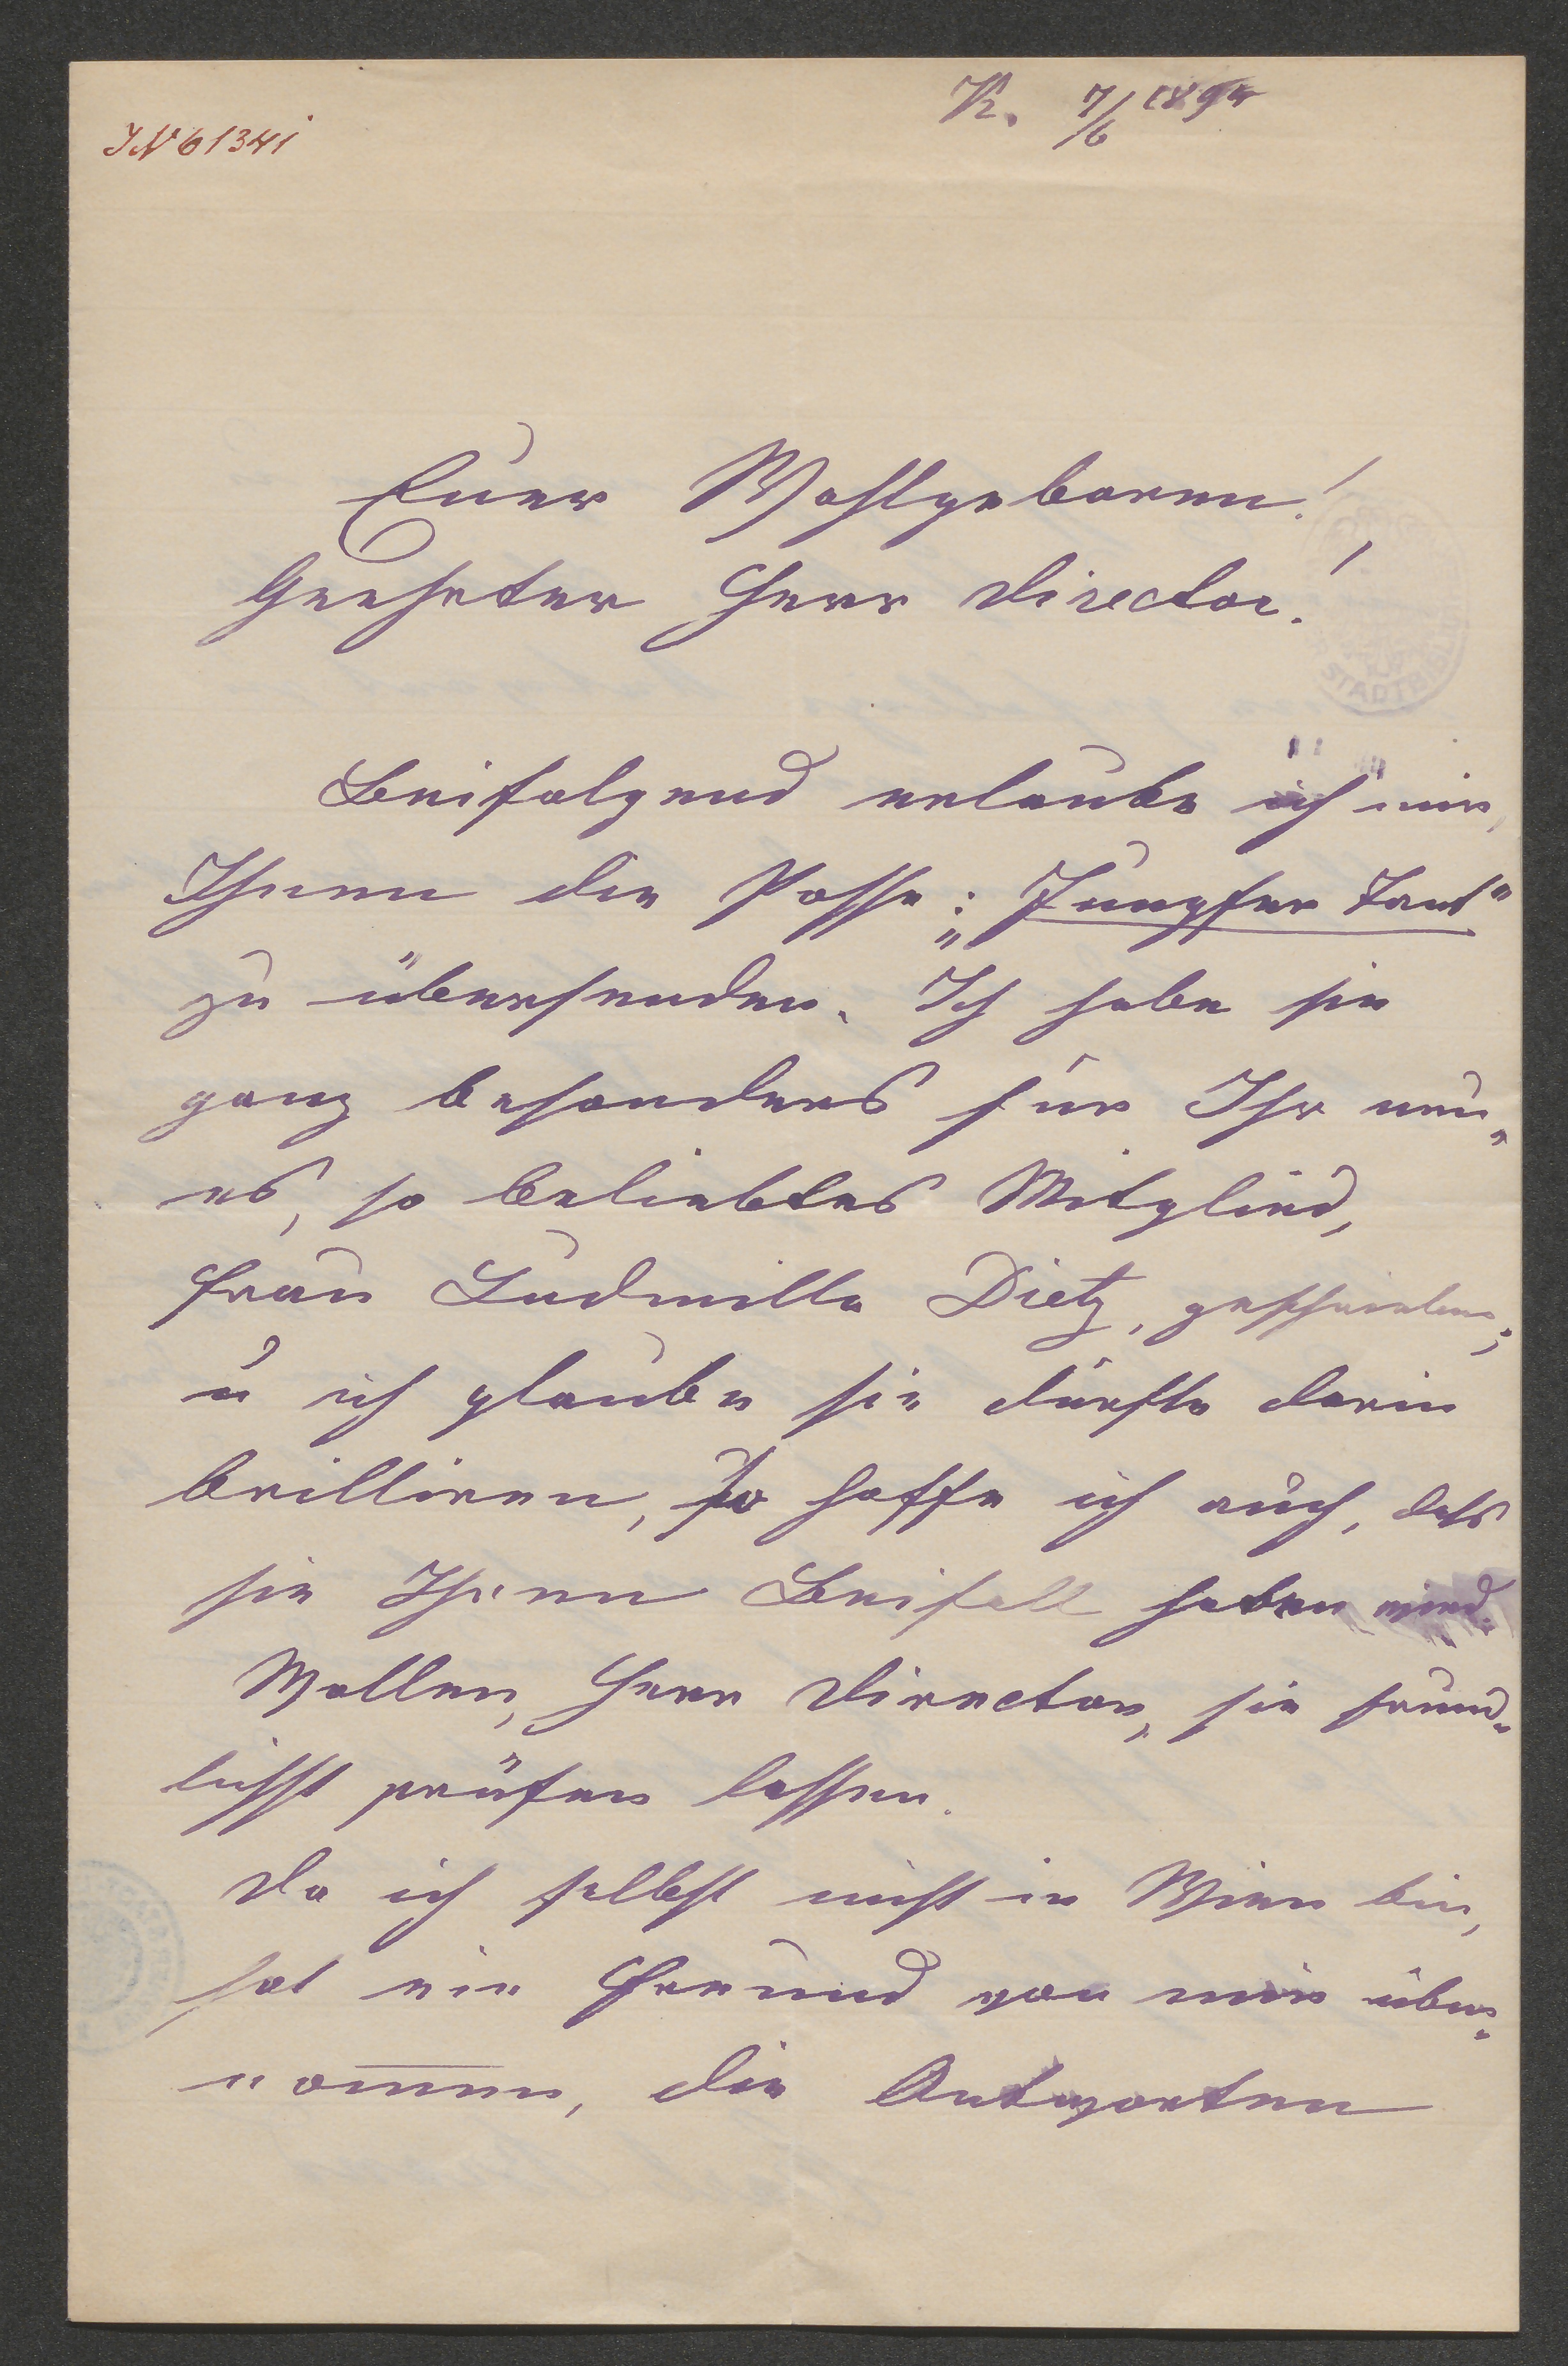 K. 7/6 1894
IN 61341
Euer Wohlgeboren!
Geehrter Herr Director!
Beifolgend erlaube ich mir,
Ihnen die Posse: „Jungfer Tant"
zu übersenden. Ich habe sie
ganz besonders für Ihr neu-
es, so beliebtes Mitglied,
Frau Ludmilla Dietz, geschrieben;
u ich glaube sie dürfte darin
brilliren, so hoffe ich auch, dass
sie Ihren Beifall haben wird.
Wollen, Herr Director, sie freund-
lichst prüfen lassen.
Da ich selbst nicht in Wien bin,
hat ein Freund von mir über-
nommen, die Antworten